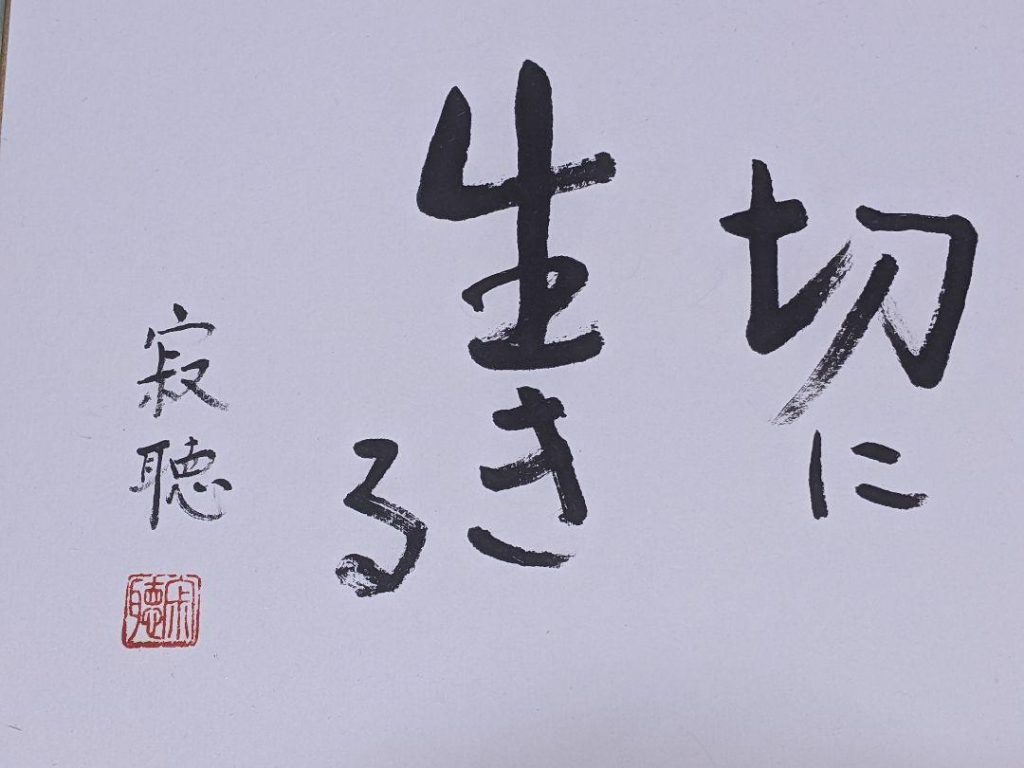 切に
生き
る
寂聴
寂聴